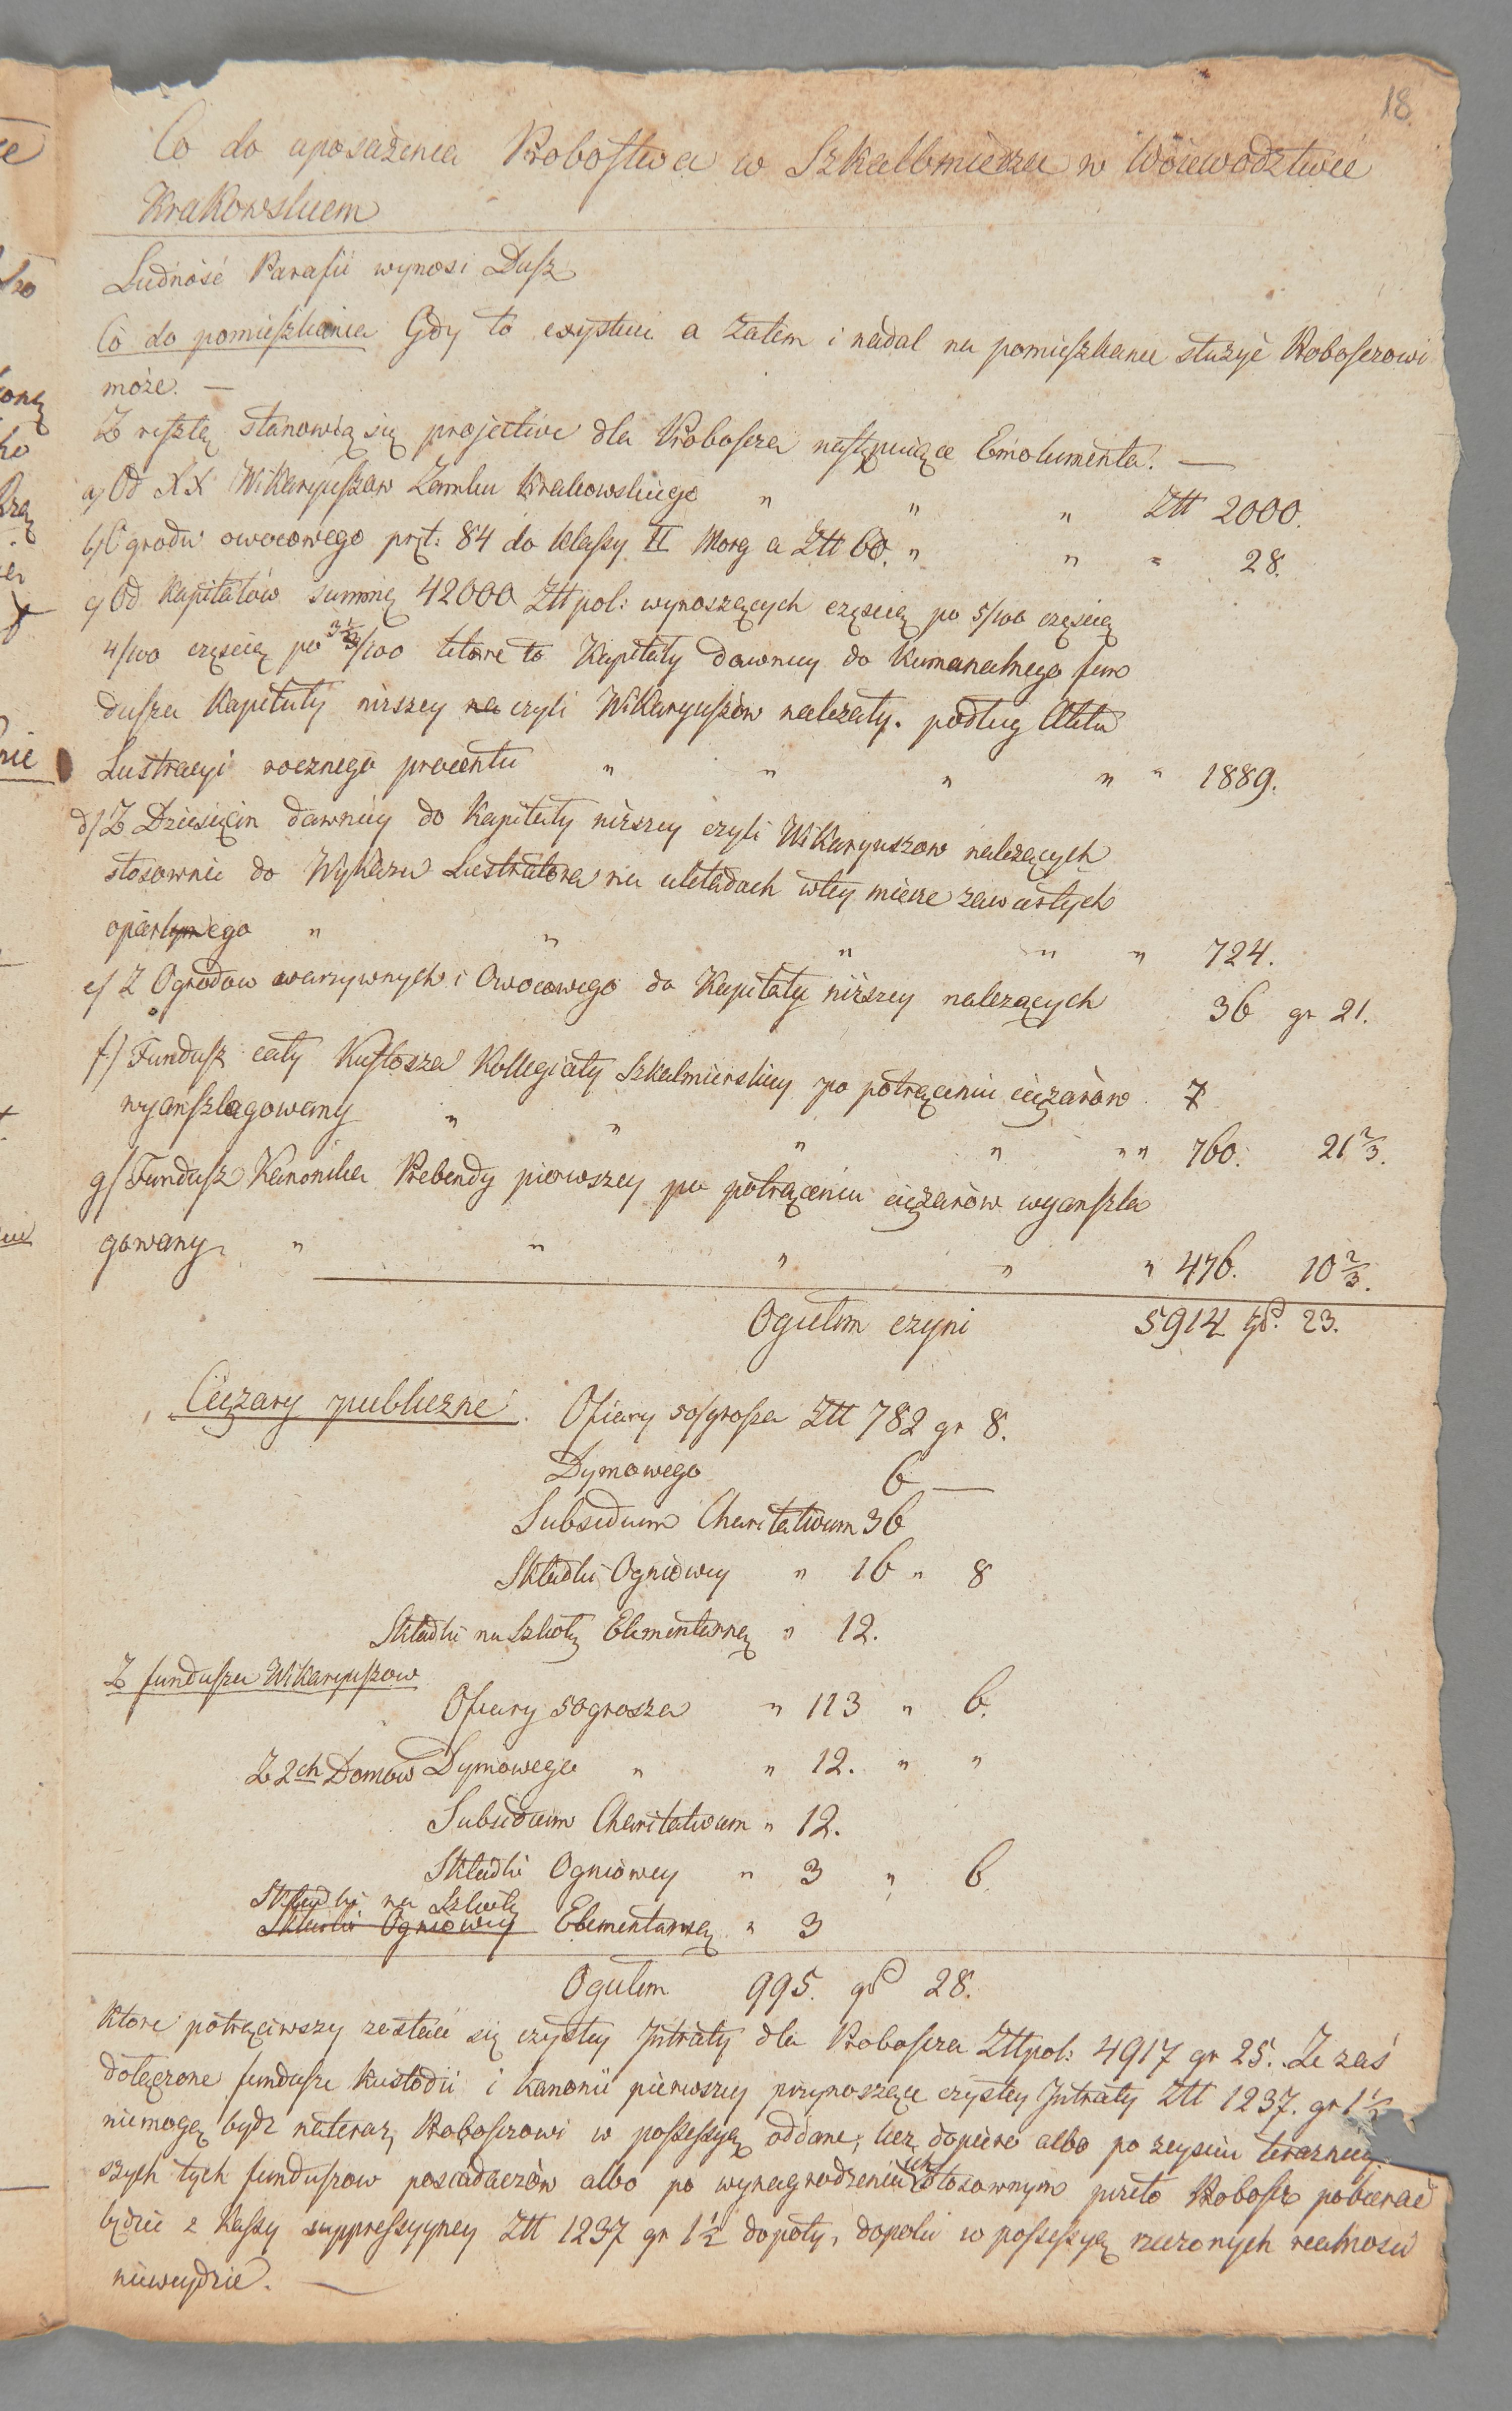 18.
Co do uposażenia Probostwa w Szkalbmierzu w Woiewodztwie
Krakowskiem
Ludność Parafii wynosi Dusz
Co do pomieszkania Gdy to exystuie a zatem i nadal na pomieszkanie służyć Proboszczowi
może. —
Z resztą stanowią się projective dla Proboszcza następuiące Emolumenta. —
a) Od XX Wikaryuszow Zamku Krakowskiego " " " Złł 2000.
b) Ogrodu owocowego pręt: 84 do klassy II Morg a Złł 60. " " " 28.
c) Od Kapitałów summę 42000 Złł pol: wynoszących częścią po 5/100 częścią
4/100 częścią po 3½/100 które to Kapitały dawniey do kumunalnego fun
duszu Kapituły niższey na czyli Wikaryuszów należały. podług Aktu
Lustracyi rocznego procentu " " " " " 1889.
d) Z Dziesięcin dawniey do Kapituły niższey czyli Wikaryuszow należących
stosownie do Wykazu Lustratora na układach wtey mierze zawartych
opartymego " " " " " 724.
e) Z Ogrodow warzywnych i Owocowego do Kapituły niższey należących 36 gr 21.
f) Fundusz cały Kustosza Kollegiaty Szkalmierskiey po potrąceniu ciężarów 7
wyanszlagowany " " " " " " 760. 21⅔.
g) Fundusz Kanonika Prebendy pierwszey po potrąceniu ciężarów wyanszla
gowany " " " " " 476. 10⅔.
Ogułem czyni 5914 gr. 23.
Ciężary publiczne. Ofiary 50/grosza Złł 782 gr 8.
Dymowego 6 —
Subsidium Charitativum 36
Składki Ogniowey " 16 " 8
Składki na Szkołę Elementarną " 12.
Z funduszu Wikaryuszow
Ofiary 50grosza " 113 " 6.
Z 2ch Domów Dymowego " " 12. " "
Subsidium Charitativum " 12.
Składki Ogniowey " 3 " 6.
Składki na Szkołę
Składki Ogniowey Elementarną " 3
Ogułem 995. gr 28.
które potrąciwszy zostaie się czystey Intraty dla Proboszcza Złł pol: 4917 gr 25. Ze zaś
dołączone fundusze Kustodii i Kanonii pierwszey przynoszące czystey Intraty Złł 1237. gr 1½
niemogą bydz nateraz Proboszczowi w possessyą oddane, lecz dopiero albo po zeysciu terazniey
szych tych funduszow posiadaczów albo po wynagrodzeniu ich stosownym przeto Proboszcz pobierać
będzie z Kassy suppressyyney Złł 1237 gr 1½ dopoty, dopoki w possessyą rzeczonych realnosci
niewejdzie. —